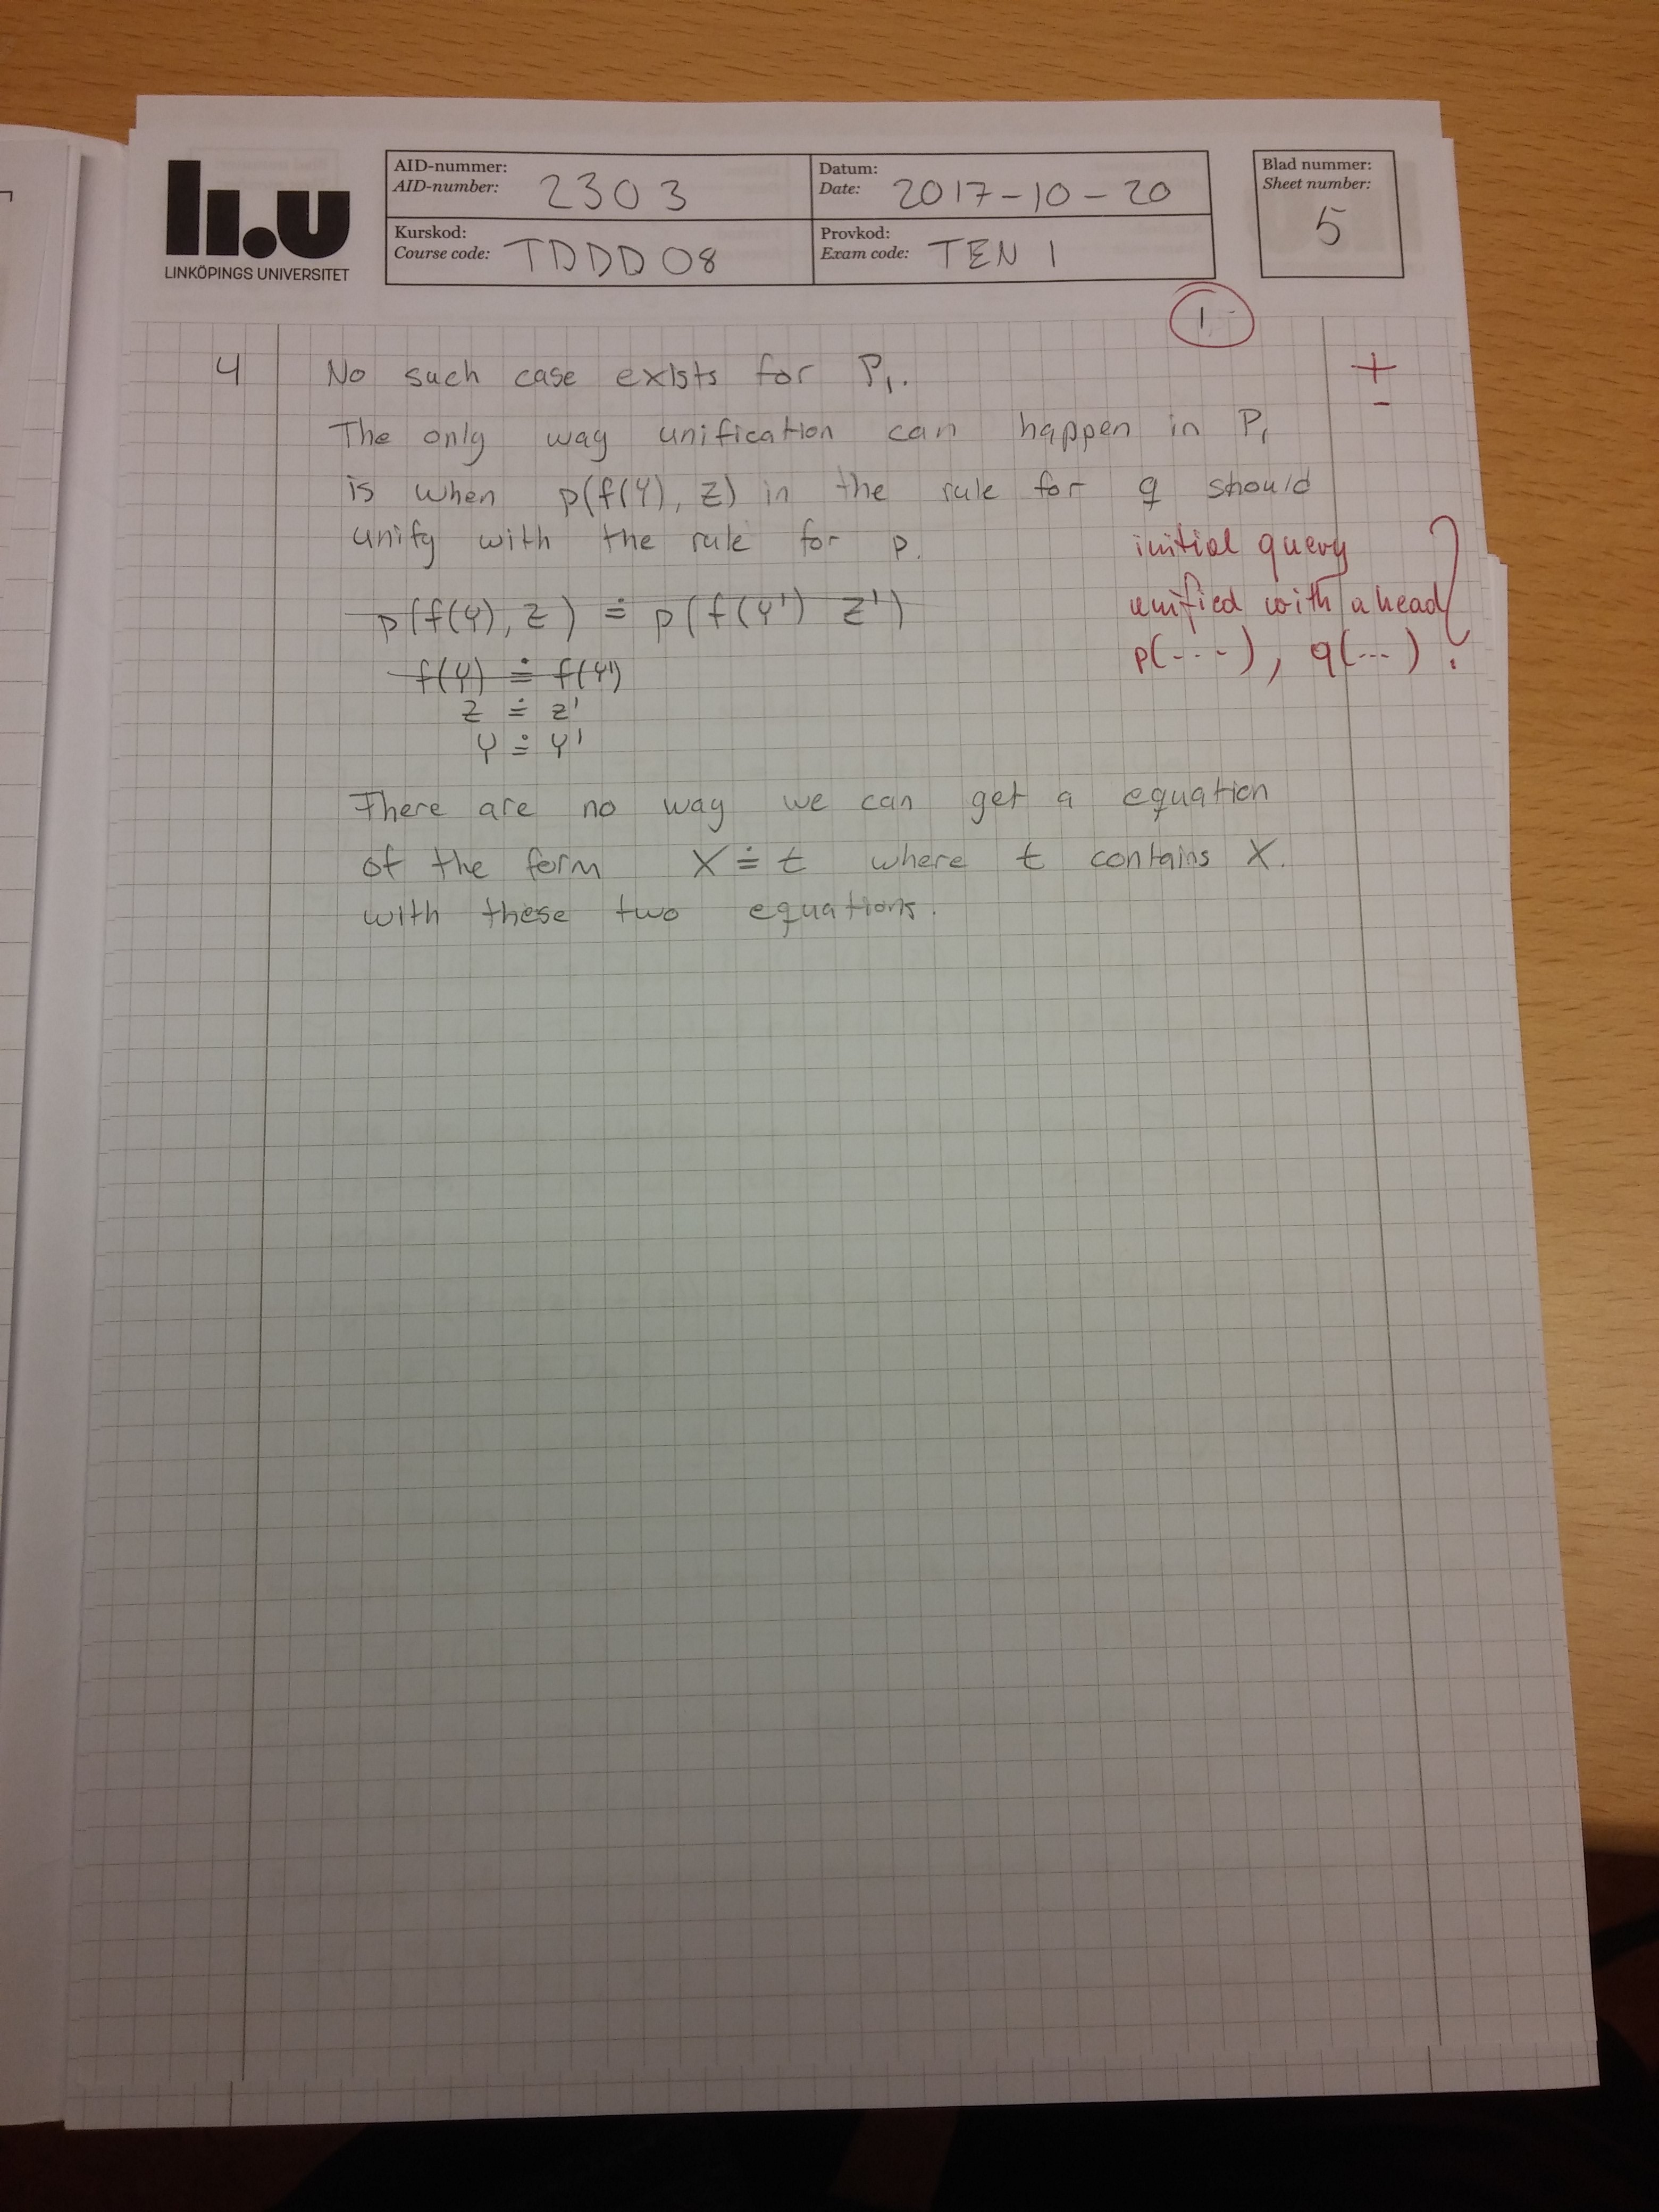 LINKÖPINGS UNIVERSITET
AID-nummer:
AID-number: 2303
Datum:
Date: 2017-10-20
Blad nummer:
Sheet number:
5
Kurskod:
Course code: TDDD08
Provkod:
Exam code: TEN 1
1-
4 No such case exists for P₁. +
-
The only way unification can happen in P₁
is when p(f(Y), Z) in the rule for q should
unify with the rule for p.
initial query
unified with a head
p(---), q(---) ?
p(f(Y), Z) ≐ p(f(Y') Z')
f(Y) ≐ f(Y')
Z ≐ Z'
Y ≐ Y'
There are no way we can get a equation
of the form X ≐ t where t contains X.
with these two equations.